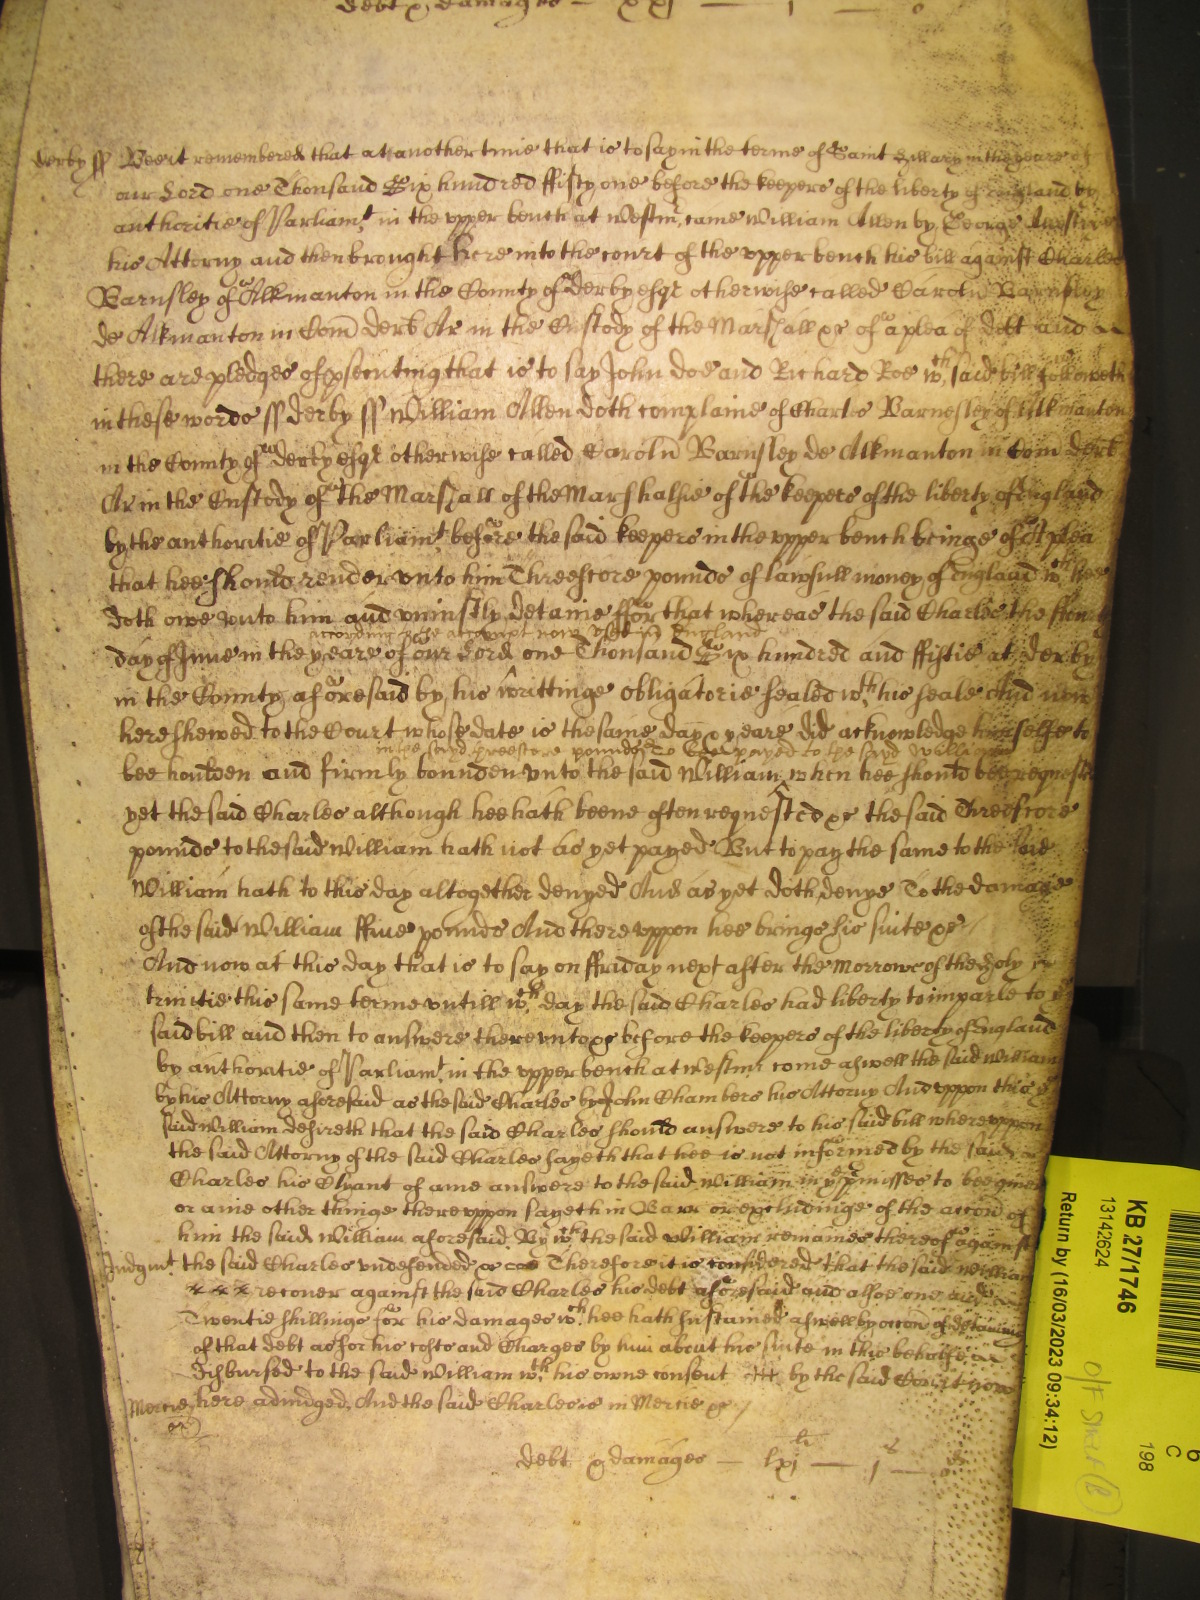 debt & damages — xxj — j — 0
Derby ss Bee it remembered that at another time that is to say in the terme of Saint Hillary in the yeare of
our Lord one Thousand Six hundred ffifty one before the keepers of the liberty of England by
authoritie of Parliamt. in the vpper bench at Westmr. came William Allen by George
his Attorny and then brought here into the court of the vpper bench his bill against Charles
Barnsley of Alkmanton in the County of Derby esqr otherwise called Carolu Barnsley
de Alkmanton in Com Derb Ar in the Custody of the Marshall &c of a plea of debt and
there are pledges of psecuting that is to say John Doe and Richard Roe wch. said bill followeth
in these words ss Derby ss William Allen doth complaine of Charles Barnesley of Alkmanton
in the County of Derby esqr otherwise called Carolu Barnsley de Alkmanton in Com Derb
Ar in the Custody of the Marshall of the Marshalsie of the keepers of the liberty of England
by the authoritie of Parliamt. before the said keepers in the vpper bench beinge of A plea
that hee should render vnto him Threescore pounds of lawfull money of England wch. hee
doth owe vnto him and vniustly detaine ffor that whereas the said Charles the
according to the accompt now vsed in England
day of June in the yeare of our Lord one Thousand Six hundred and ffiftie at Derby
in the County aforesaid by his writtinge obligatorie sealed wth. his seale And now
here shewed to the Court whose date is the same day & yeare did acknowledge himselfe to
in the sayd threescore pounds To bee payed to the said William
bee houlden and firmly bounden vnto the said William when hee should bee requested
yet the said Charles although hee hath beene often requested &c the said Threescore
pounds to the said William hath not as yet payed But to pay the same to the said
William hath to this day altogether denyed And as yet doth denye To the damage
of the said William ffiue pounds And therevppon hee brings his suite &c
And now at this day that is to say on ffriday next after the Morrowe of the Holy
trinitie this same terme vntill wch. day the said Charles had liberty to imparle to ye
said bill and then to answere therevnto &c before the keepers of the liberty of England
by authoritie of Parliamt. in the vpper bench at Westmr come aswell the said William
by his Attorny aforesaid as the said Charles by John Chambers his Attorny And vppon this ye
said William desireth that the said Charles should answere to his said bill wherevppon
the said Attorny of the said Charles sayeth that hee is not informed by the said
Charles his Clyant of anie answere to the said William in ye pmisses to bee giuen
or anie other thinge therevppon sayeth in Barr or excludinge of the accon of
him the said William aforesaid By wch. the said William remaines thereof against
Judgmt. the said Charles vndefended &c Therefore it is considered that the said William
recouer against the said Charles his debt aforesaid and alsoe one and
Twentie shillings for his damages wch. hee hath sustained aswell by occon of detaining
of that debt as for his costs and Charges by him about his suite in this behalfe
disbursed to the said William wth. his owne consent by the said Court now
Mercie here adiudged. And the said Charles is in Mercie &c
debt & damages — lxjli — js — 0d
KB 27/1746
13142624
Return by (16/03/2023 09:34:12)
6
C
198
O/F